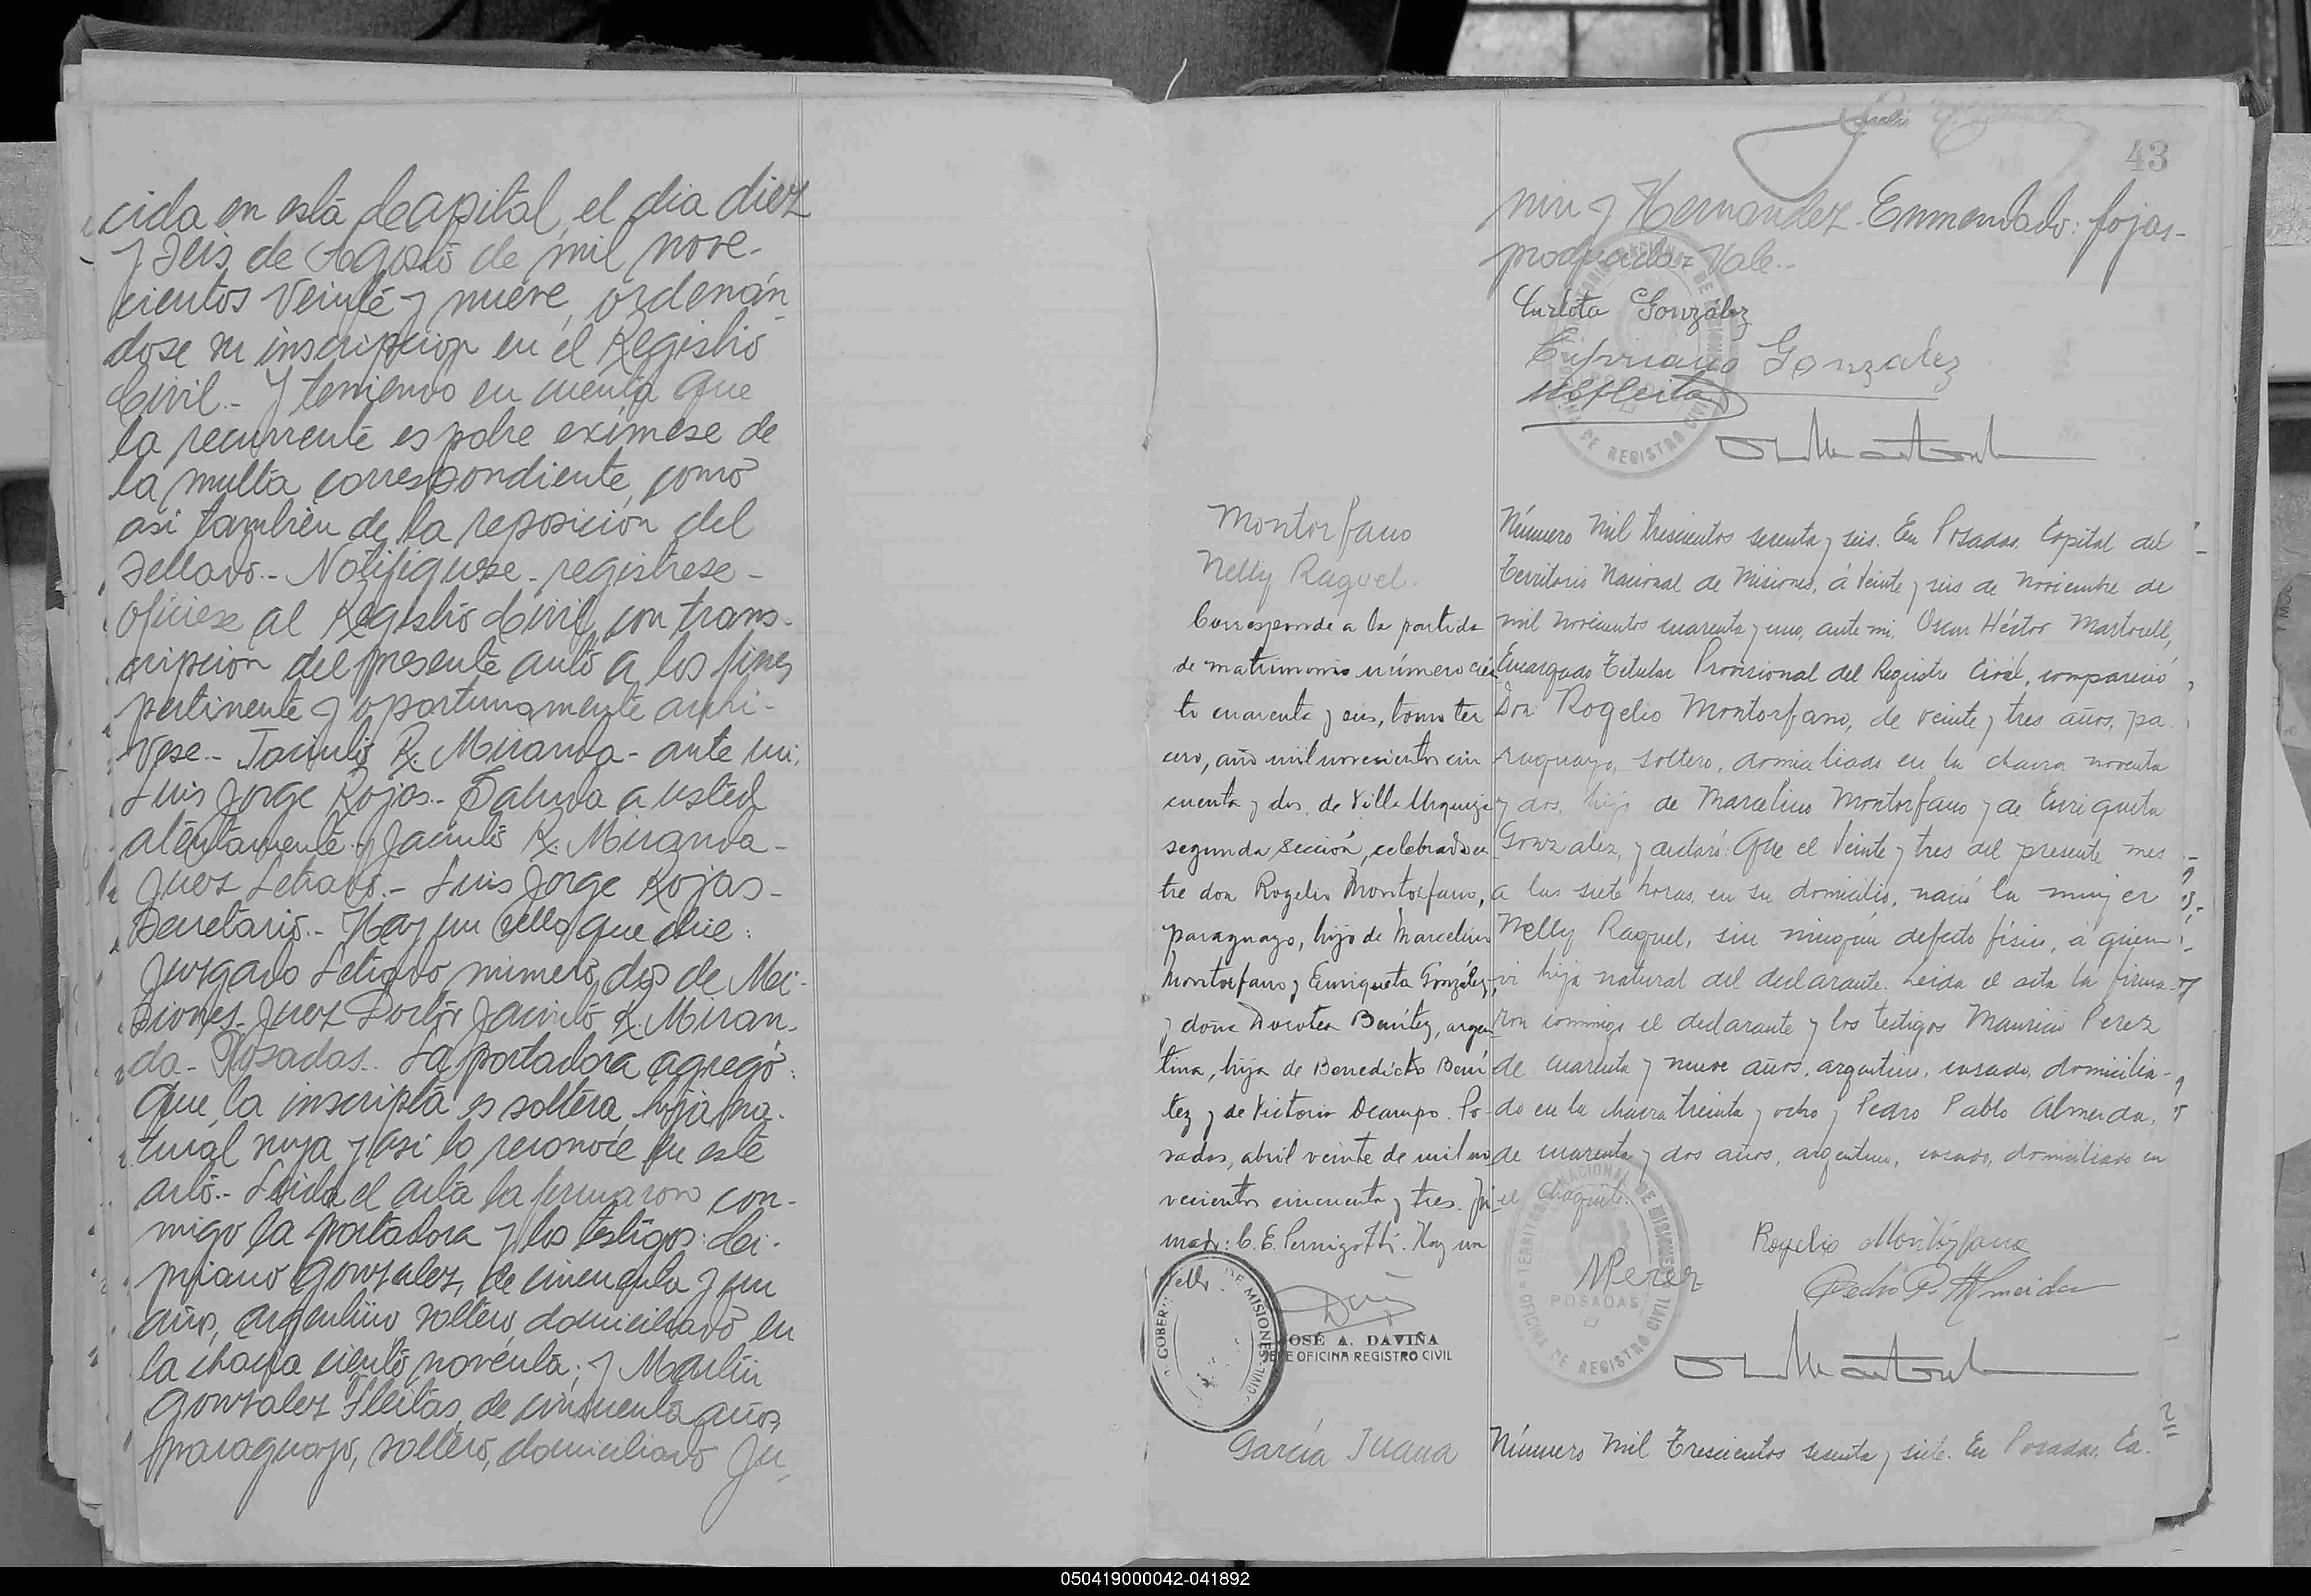 cida en esta Capital, el dia diez
y seis de Agosto de mil nove-
cientos veinte y nueve, ordenán-
dose su inscripcion en el Registro
Civil.- Y teniendo en cuenta que
la recurrente es pobre exímese de
la multa correspondiente, como
asi también de la reposición del
sellado.- Notifíquese - regístrese -
ofíciese al Registro Civil con trans-
cripcion del presente auto a los fines
pertinente y oportunamente archi-
vese.- Jacinto R. Miranda - ante mi:
Luis Jorge Rojas.- Saluda a usted
atentamente.- Jacinto R. Miranda -
Juez Letrado.- Luis Jorge Rojas -
Secretario.- Hay un sello que dice:
Juzgado Letrado número dos de Mi-
siones. Juez Doctor Jacinto R. Miran-
da - Posadas.- La portadora agregó:
Que la inscripta es soltera, hija na-
tural suya y asi lo reconoce en este
acto.- Leida el acta la firmaron con-
migo la portadora y los testigos: Ci-
priano Gonzalez, de cincuenta y un
años, argentino soltero, domiciliado en
la chacra ciento noventa; y Martin
Gonzalez Fleitas, de cincuenta años,
paraguayo, soltero, domiciliado Ju-
43
nin y Hernandez - Enmendado: fojas-
Vale.-
Carlota González
Cipriano Gonzalez
Montorfano
Nelly Raquel.
Corresponde a la partida
de matrimonio número cien
to cuarenta y seis, tomo ter
cero, año mil novecientos cin
cuenta y dos, de Villa Urquiza
segunda sección, celebrado en
tre don Rogelio Montorfano,
paraguayo, hijo de Marcelino
Montorfano y Enriqueta González,
y doña Dorotea Benítez, argen
tina, hija de Benedicto Bení
tez y de Victoria Ocampo. Po-
sadas, abril veinte de mil no
vecientos cincuenta y tres. Fir
mado: C. E. Pernigotti. Hay un
sello.
GOBER DE MISIONES CIVIL
JOSÉ A. DAVIÑA
JEFE OFICINA REGISTRO CIVIL
Número mil trescientos sesenta y seis. En Posadas, Capital del
Territorio Nacional de Misiones, á veinte y seis de noviembre de
mil novecientos cuarenta y uno, ante mi, Oscar Héctor Martorell,
Encargado Titular Provisional del Registro Civil, compareció
Don Rogelio Montorfano, de veinte y tres años, pa
raguayo, soltero, domiciliado en la chacra noventa
y dos, hijo de Marcelino Montorfano y de Enriqueta
Gonzalez, y declaró: Que el veinte y tres del presente mes
a las siete horas, en su domicilio, nació la mujer
Nelly Raquel, sin ningún defecto físico, a quien
vi hija natural del declarante. Leida el acta la firma-
ron conmigo el declarante y los testigos Mauricio Perez
de cuarenta y nueve años, argentino, casado, domicilia-
do en la chacra treinta y ocho y Pedro Pablo Almeida,
de cuarenta y dos años, argentino, casado, domiciliado en
el Chaquito.
TERRITORIO NACIONAL DE MISIONES
POSADAS
OFICINA DE REGISTRO CIVIL
Rogelio Montorfano
MPerez
Pedro P. Almeida
García Juana
Número mil Trescientos sesenta y siete. En Posadas, Ca-
050419000042-041892